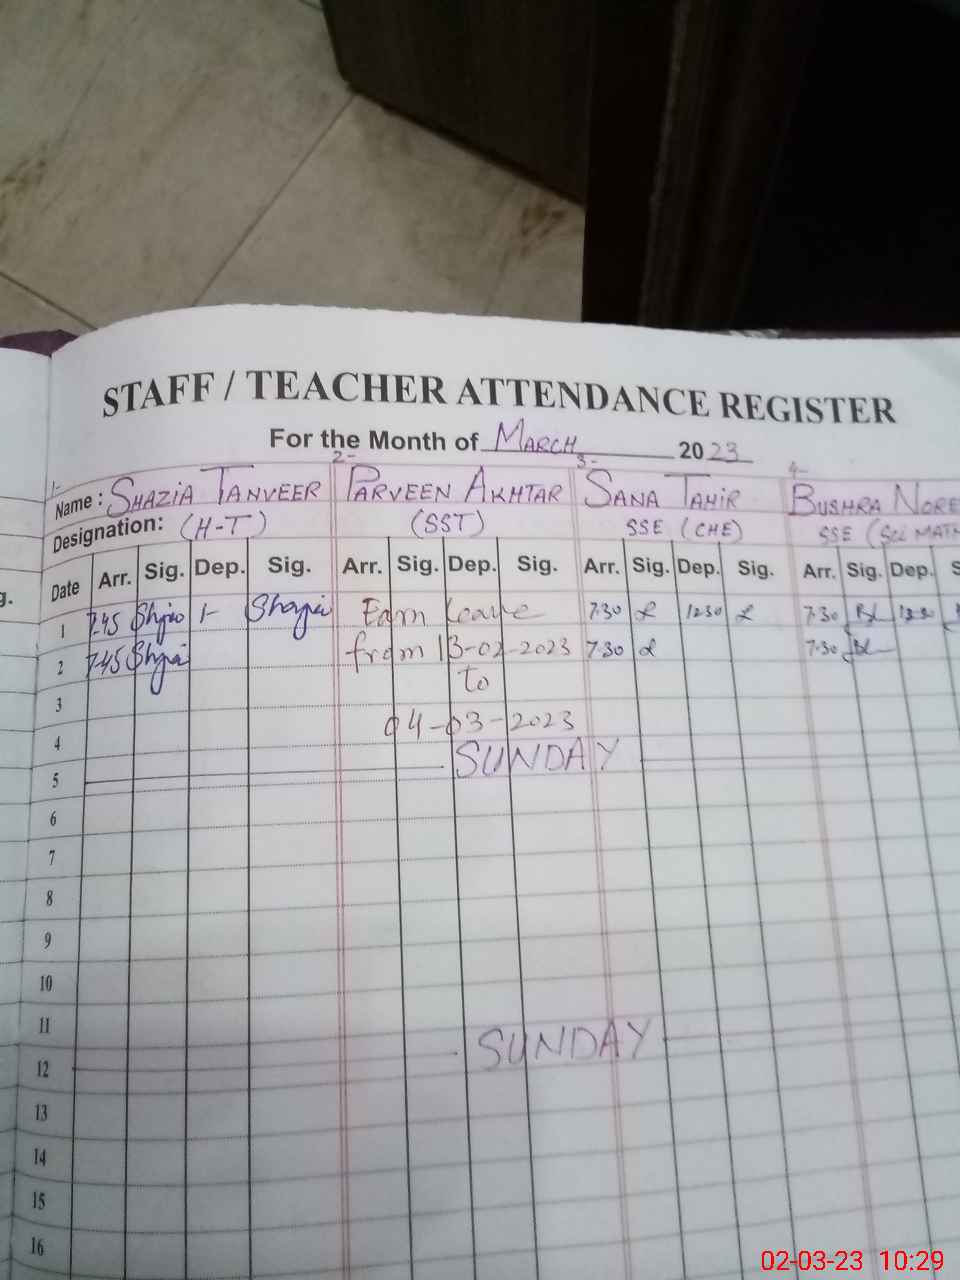 STAFF / TEACHER ATTENDANCE REGISTER
For the Month of MARCH 2023
1- 2- 3- 4-
Name : SHAZIA TANVEER PARVEEN AKHTAR SANA TAHIR BUSHRA NORE
Designation: (H-T) (SST) SSE (CHE) SSE (Sci MATH
g. Date Arr. Sig. Dep. Sig. Arr. Sig. Dep. Sig. Arr. Sig. Dep. Sig. Arr. Sig. Dep. S
1 7:45 1- Earn leave 7:30 12:30 7:30 12:30
2 7:45 from 13-02-2023 7:30 7:30
3 to
4 04-03-2023
5 SUNDAY
6
7
8
9
10
11
12 SUNDAY
13
14
15
16
02-03-23 10:29